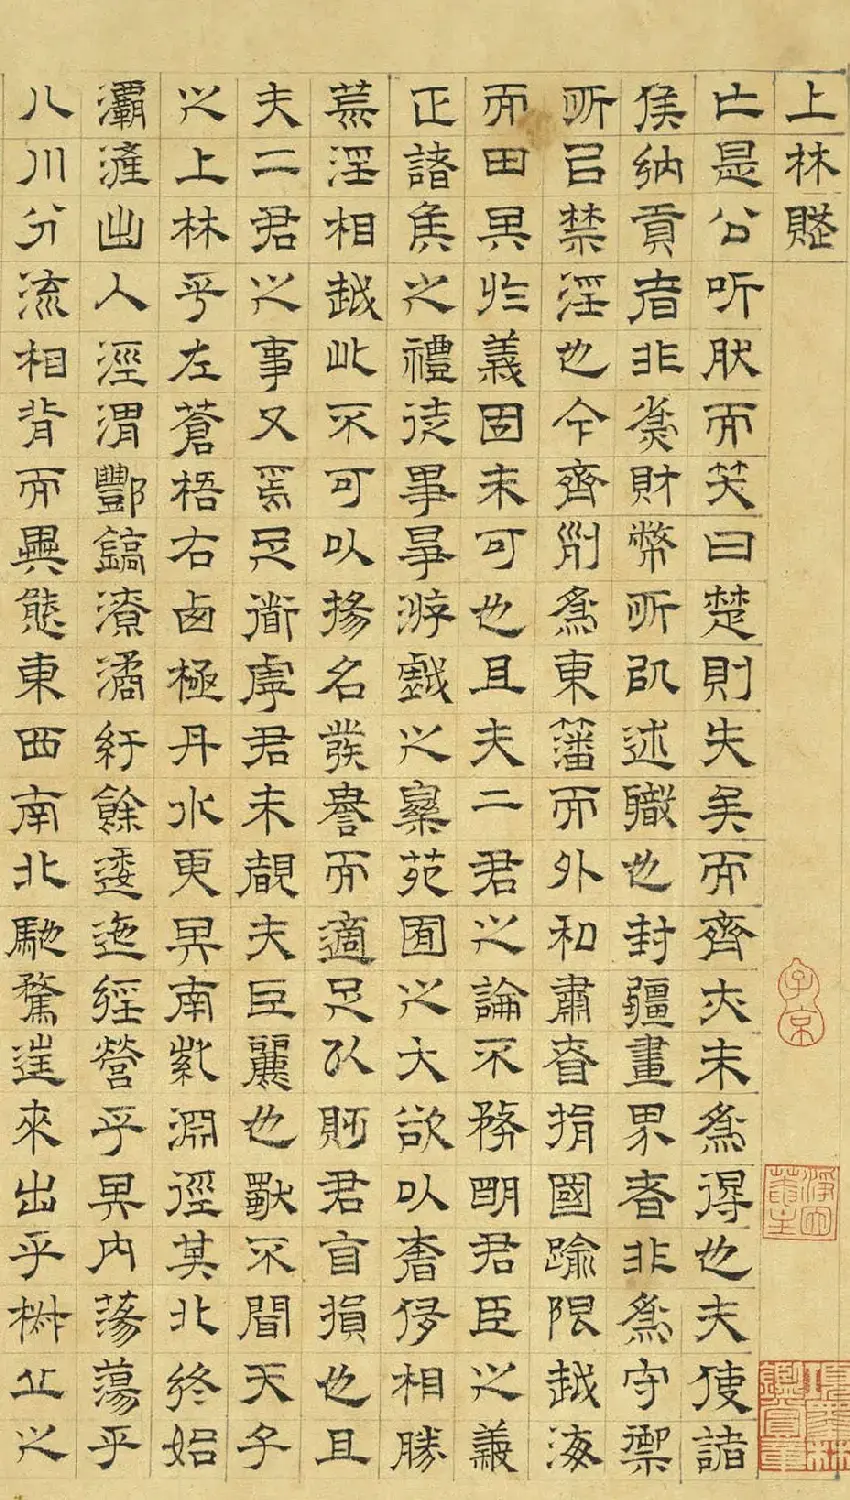 上林賦
亡是公听肰而笑曰楚則失矣而齊亦未為得也夫使諸
侯納貢者非為財幣所以述職也封疆畫界者非為守禦
所㠯禁淫也今齊列為東藩而外和肅眘捐國踰限越海
而田其於義固未可也且夫二君之論不務明君臣之義
正諸侯之禮徒事爭游戲之樂苑囿之大欲以奢侈相勝
荒淫相越此不可以揚名發譽而適足以貶君自損也且
夫二君之事又焉足道虖君未覩夫巨麗也獨不聞天子
之上林乎左蒼梧右西極丹水更其南紫淵徑其北終始
灞滻出入涇渭酆鎬潦潏紆餘逶迤經營乎其內蕩蕩乎
八川分流相背而異態東西南北馳騖往來出乎椒丘之
子京
淨因菴主
項墨林鑑賞章